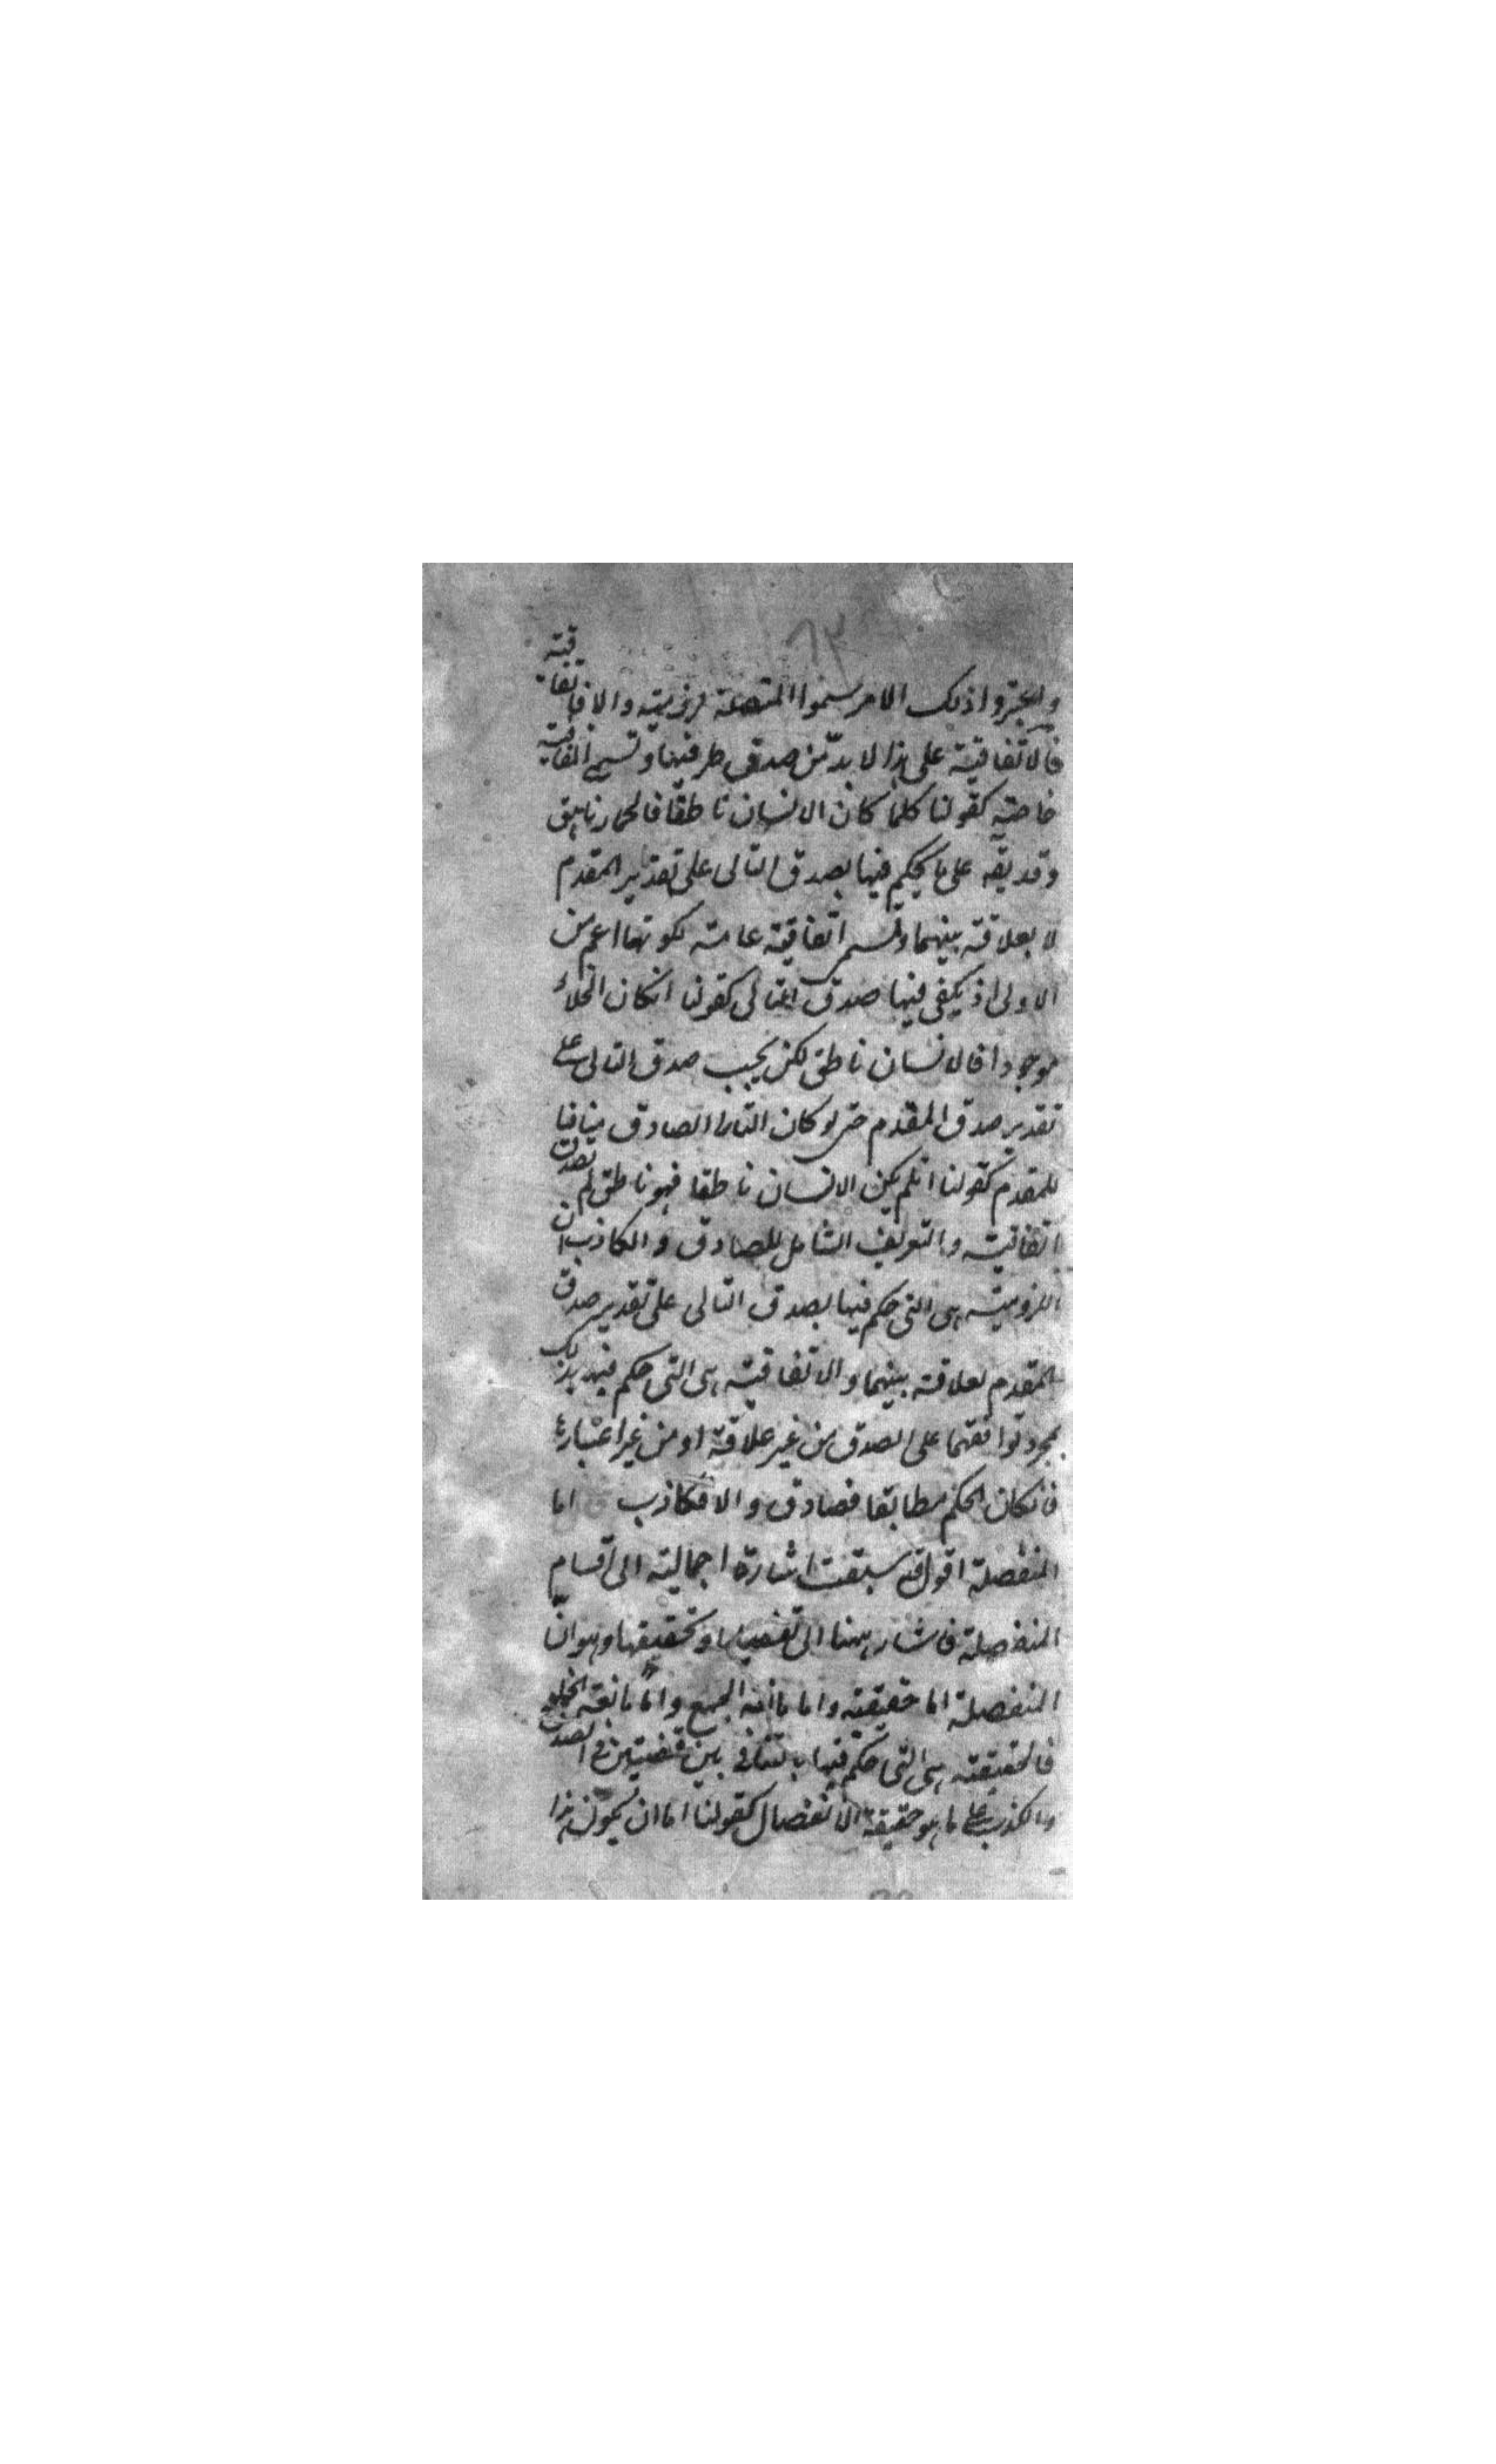 ٦٣
واعتبروا ذلك الامر سموا المتصلة لزومية والا فاتفاقية
فالاتفاقية على هذا لا بد من صدق طرفيها وتسمى اتفاقية
خاصة كقولنا كلما كان الانسان ناطقا فالحمار ناهق
وقد يقه على ما يحكم فيها بصدق التالى على تقدير المقدم
لا بعلاقة بينهما وتسمى اتفاقية عامة لكونها اعم من
الاولى اذ يكفى فيها صدق التالى كقولنا انكان الخلاء
موجودا فالانسان ناطق لكن يجب صدق التالى على
تقدير صدق المقدم حتى لو كان التالى الصادق منافيا
للمقدم كقولنا انلم يكن الانسان ناطقا فهو ناطق لم تصدق
اتفاقية والتعريف الشامل للصادق والكاذب ان
اللزومية هى التى حكم فيها بصدق التالى على تقدير صدق
المقدم لعلاقة بينهما والاتفاقية هى التى حكم فيها بذلك
بمجرد توافقهما على الصدق من غير علاقة او من غير اعتبارها
فانكان الحكم مطابقا فصادق والا فكاذب اما
المنفصلة اقول قد سبقت اشارة اجمالية الى اقسام
المنفصلة فاشار ههنا الى تفصيلها وتحقيقها وهو انّ
المنفصلة اما حقيقية واما مانعة الجمع واما مانعة الخلو
فالحقيقية هى التى حكم فيها بالتنافى بين قضيتين فى الصدق
والكذب على ما هو حقيقة الانفصال كقولنا اما ان يكون هذا